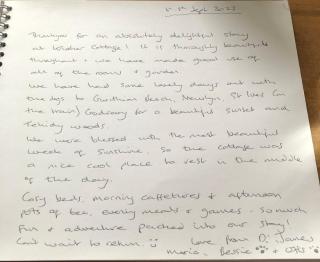 Sept 2023
Thankyou for an absolutely delightful stay
at Cottage! It is thoroughly beautiful
throughout & we have made good use of
all of the rooms & garden.
We have had some lovely days out with
the dogs to Gwithian Beach, Newlyn, St Ives (on
the train) Godrevy for a beautiful sunset and
Tehidy woods.
We were blessed with the most beautiful
week of sunshine. So the cottage was
a nice cool place to rest in the middle
of the day.
Cosy beds, morning caffetieres & afternoon
pots of tea, evening meals & games. So much
fun & adventure packed into our stay!
Can't wait to return.
Love from Di, James
Maria, Bessie & Otis